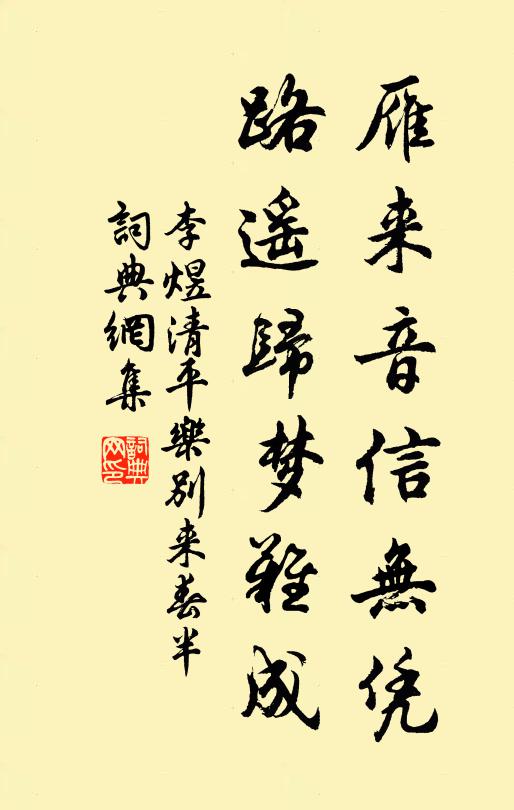 雁来音信無凭
路遥歸梦難成
李煜清平樂别来春半
詞典網集
詞典网印